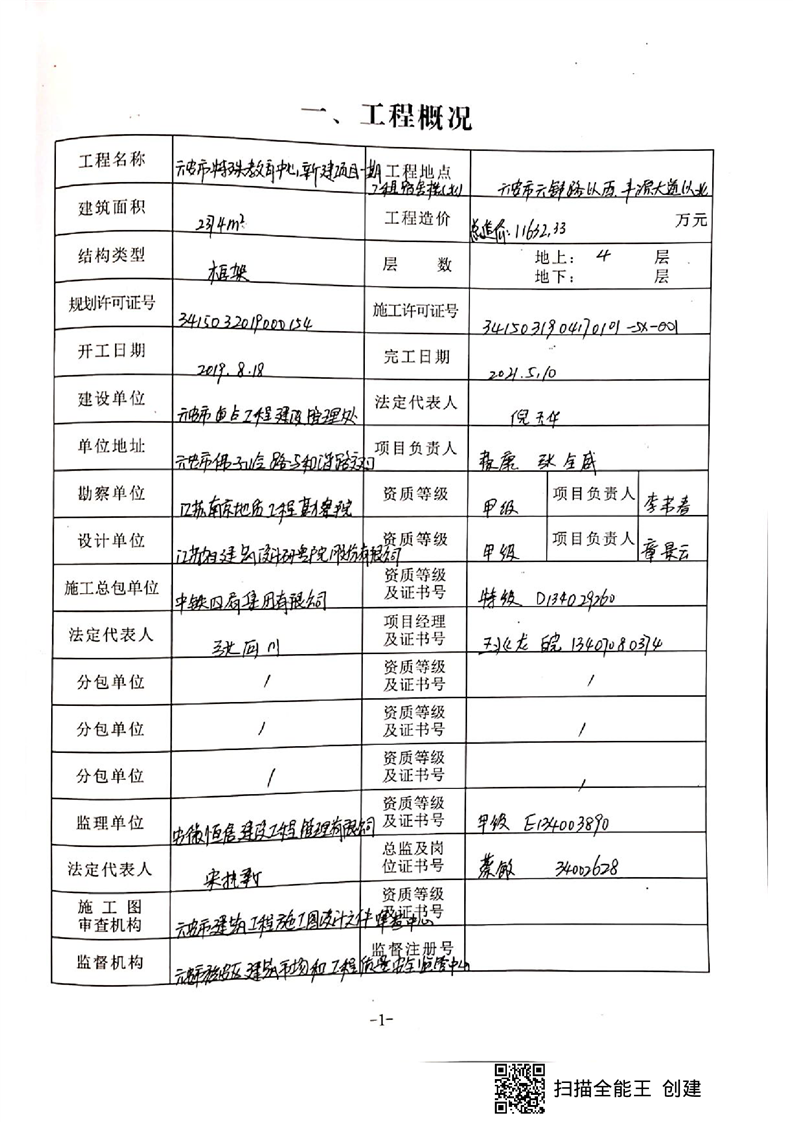 一、工程概况
工程名称 六安市特殊教育中心新建项目一期工程宿舍楼(北) 工程地点 六安市六舒路以西,丰源大道以北
建筑面积 2314m² 工程造价 总造价:11632.33 万元
结构类型 框架 层 数 地上: 4 层
地下: 层
规划许可证号 341503201900154 施工许可证号 3415031904170101-SX-001
开工日期 2019.8.18 完工日期 2021.5.10
建设单位 六安市重点工程建设管理处 法定代表人
单位地址 六安市佛子岭路与和谐路交叉口 项目负责人
勘察单位 江苏南京地质工程勘察院 资质等级 甲级 项目负责人 李书春
设计单位 建筑设计研究院股份有限公司 资质等级 甲级 项目负责人 章景云
施工总包单位 中铁四局集团有限公司 资质等级
及证书号 特级 D134029260
法定代表人 张河川 项目经理
及证书号 皖 13407080374
分包单位 / 资质等级
及证书号 /
分包单位 / 资质等级
及证书号 /
分包单位 / 资质等级
及证书号 /
监理单位 安徽恒信建设工程管理有限公司 资质等级
及证书号 甲级 E134003890
法定代表人 总监及岗
位证书号 蔡敏 34002628
施 工 图
审查机构 六安市建筑工程施工图设计文件审查中心 资质等级
及证书号
监督机构 六安市裕安区建筑市场和工程质量安全监管中心 监督注册号
-1-
扫描全能王 创建